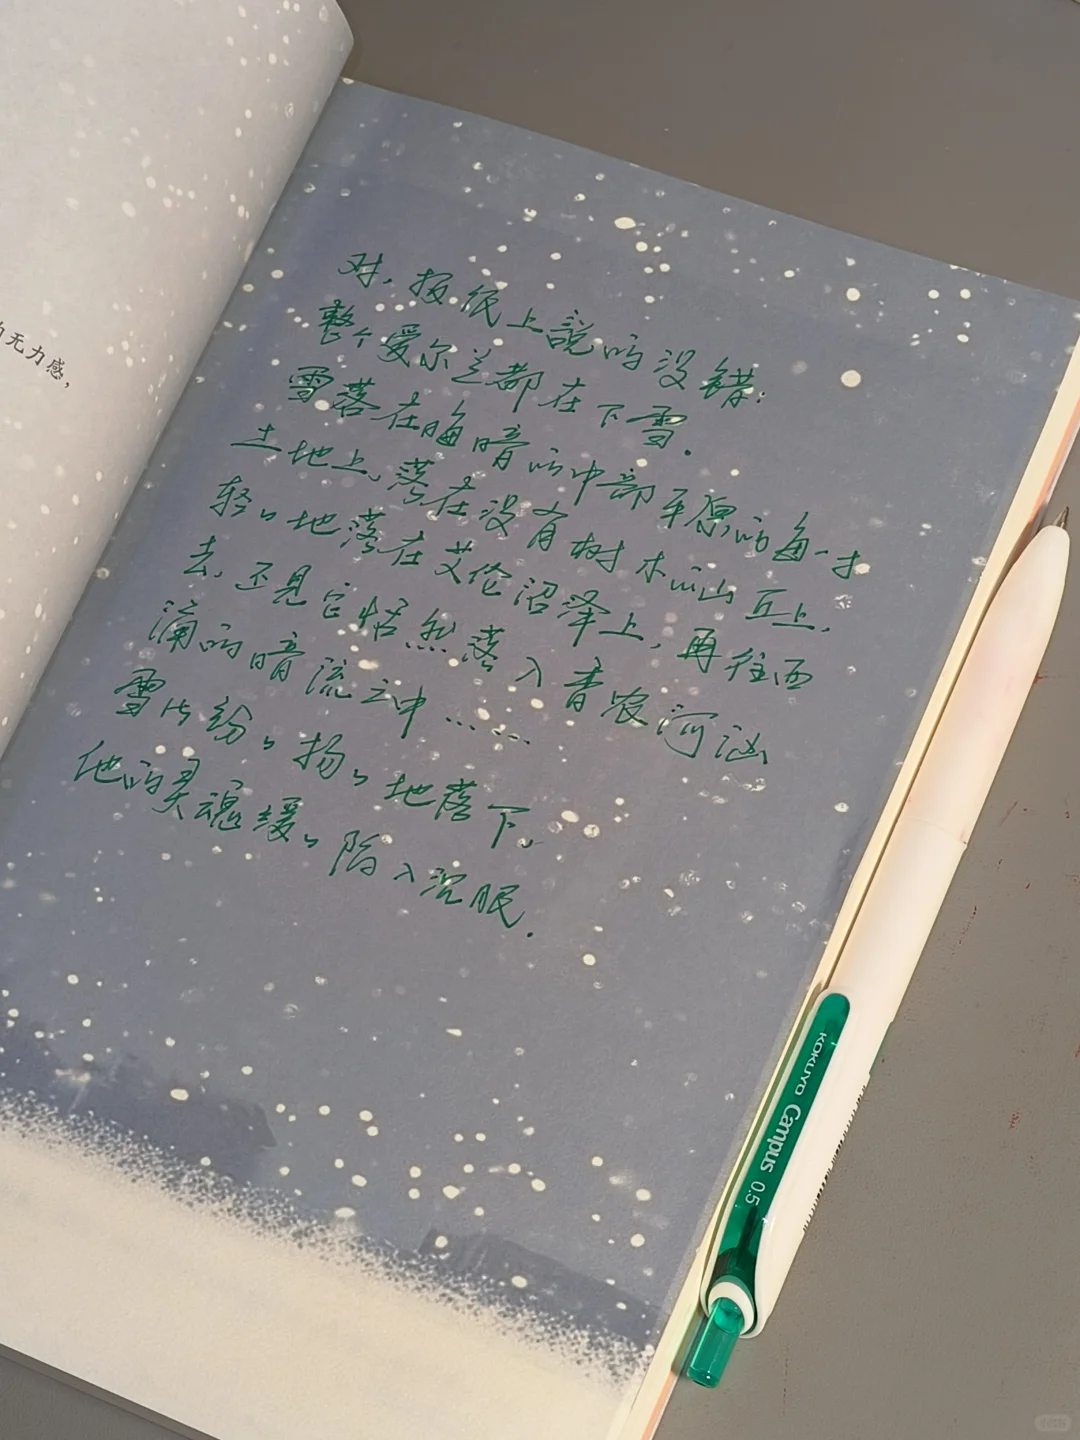 的无力感，
对，报纸上說的没错：
整个爱尔兰都在下雪．
雪落在晦暗的中部平原的每一寸
土地上、落在没有树木的山丘上，
轻轻地落在艾伦沼泽上，再往西
去，还见它恬然落入香农河汹
涌的暗流之中……
雪片纷纷扬扬地落下。
他的灵魂缓缓陷入沉眠．
KOKUYO Campus 0.5